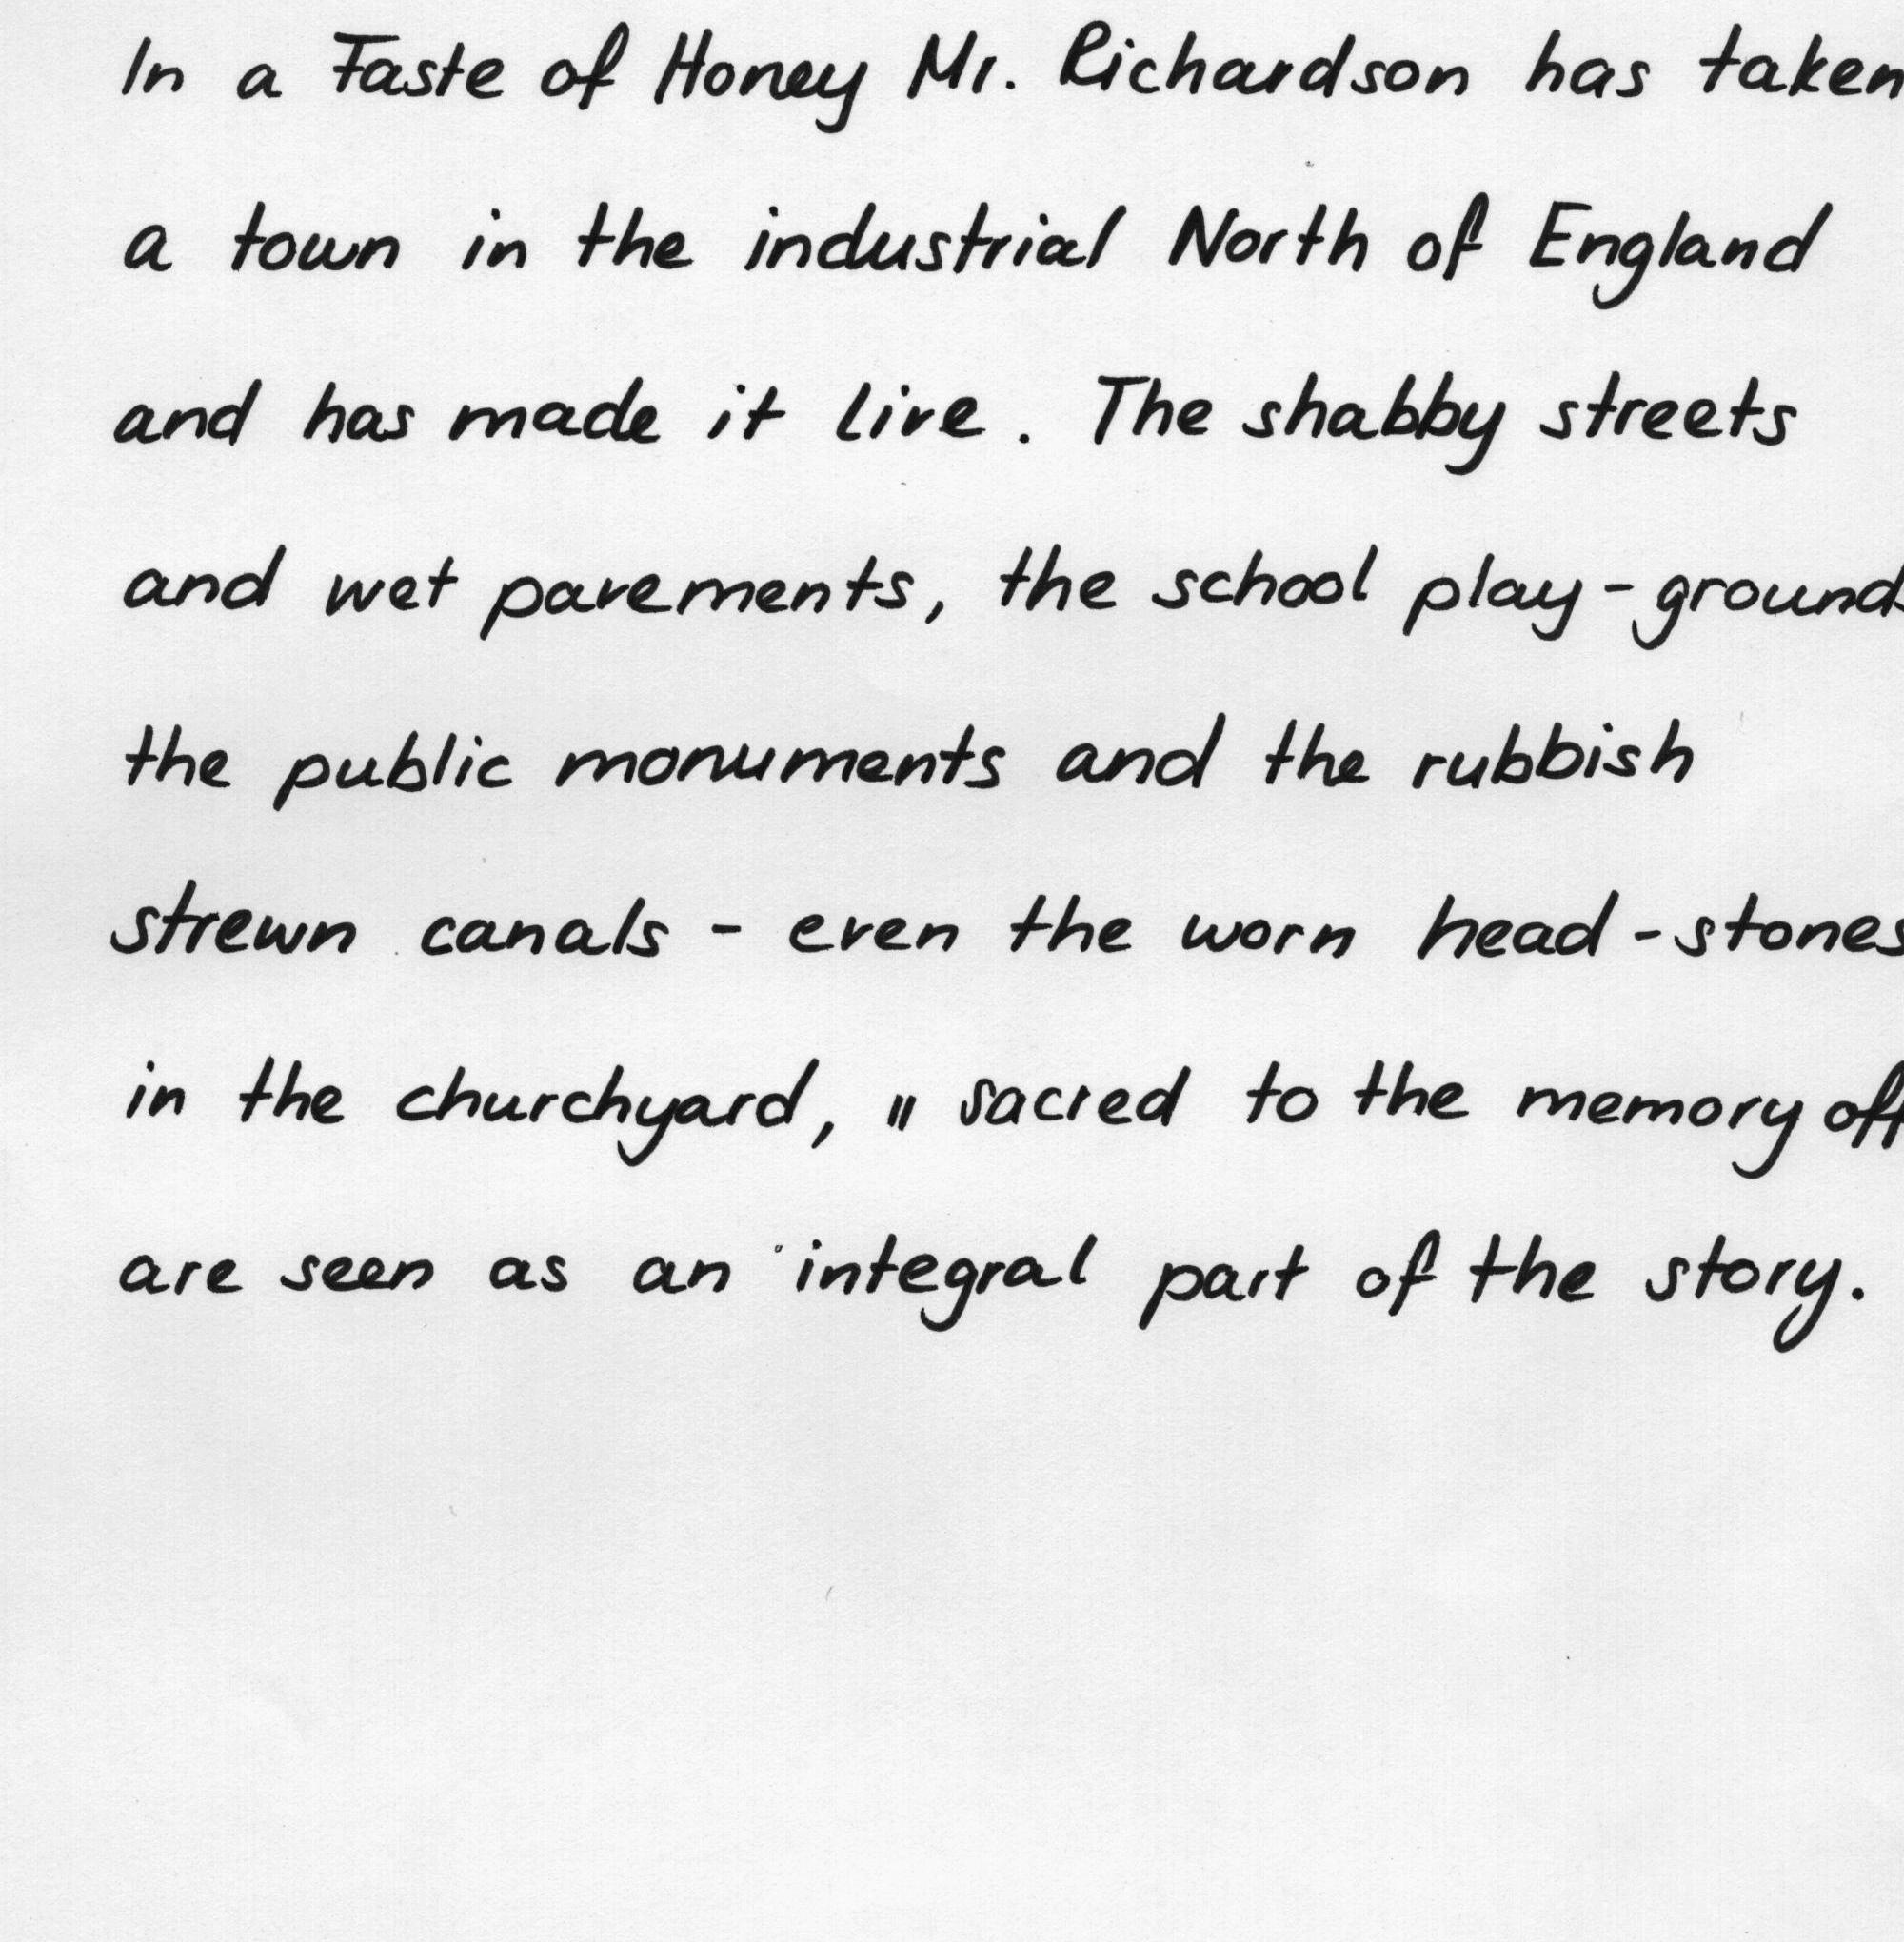 In a Taste of Honey Mr. Richardson has taken
a town in the industrial North of England
and has made it live. The shabby streets
and wet pavements, the school play-grounds
the public monuments and the rubbish
strewn canals - even the worn head-stones
in the churchyard, " sacred to the memory off
are seen as an integral part of the story.